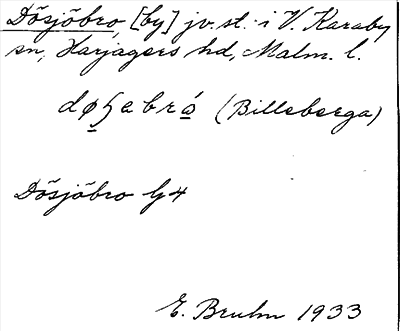 Dösjöbro, [by] jv.st. i V. Karaby
sn, Harjagers hd, Malm. l.
(Billeberga)
Dösjöbro G4
E. Bruhn 1933